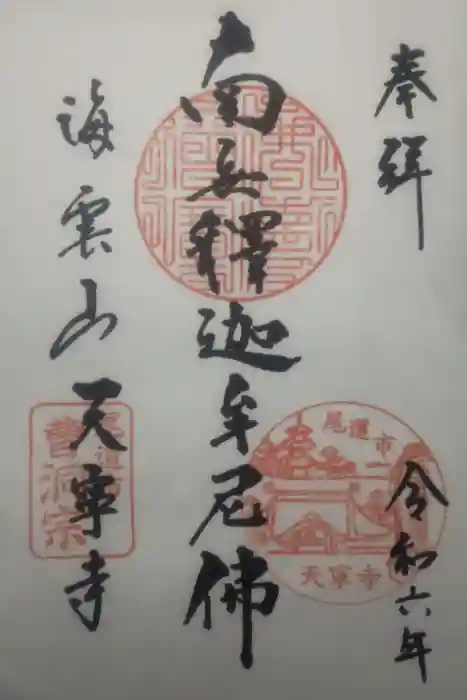 奉拜
令和六年
南无釋迦牟尼佛
海雲山天寧寺
尾道市
天寧寺
尾道市
曹洞宗